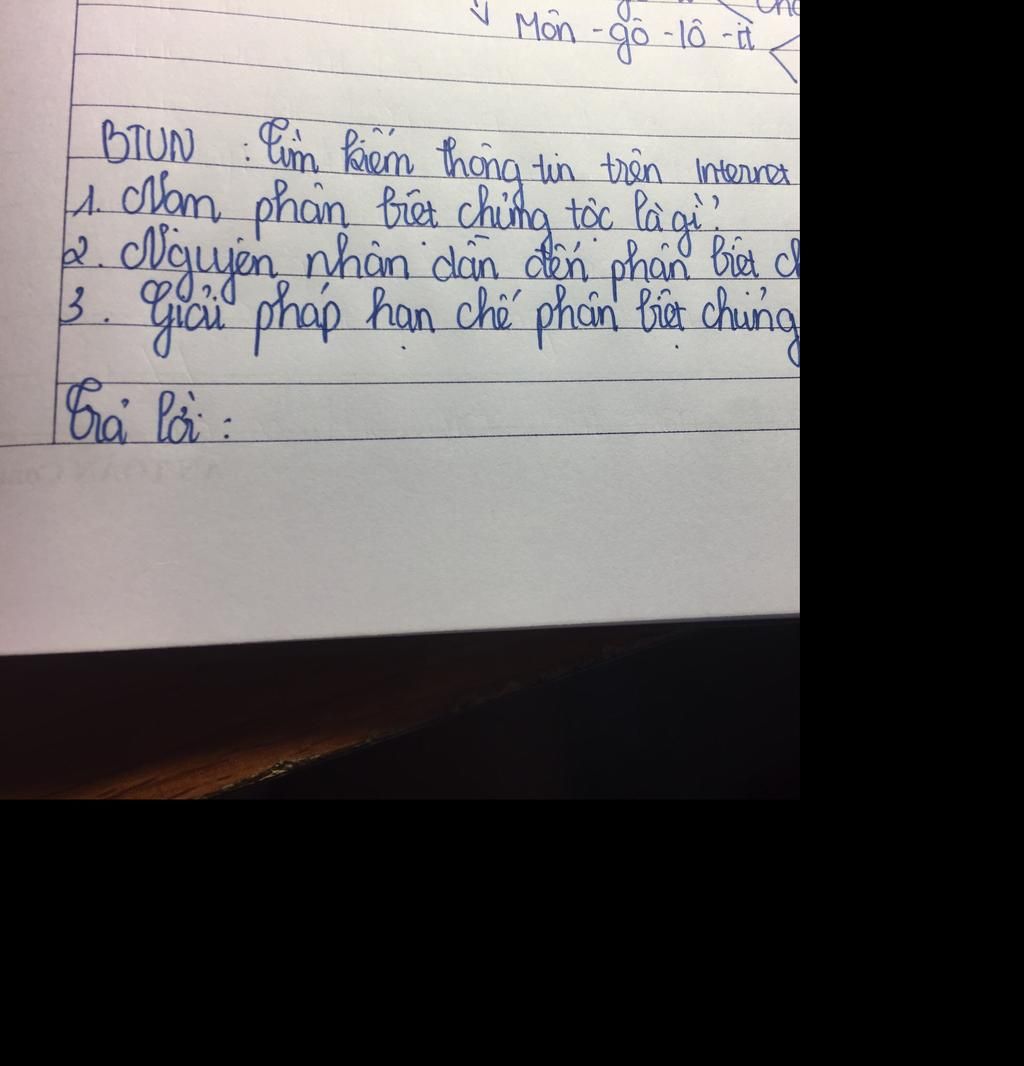 Môn - gô - lô - it
BTUN : Tìm kiếm thông tin trên internet
1. Nạn phân biệt chủng tộc là gì?
2. Nguyên nhân dẫn đến phân biệt
3. Giải pháp hạn chế phân biệt chủng
Trả lời :